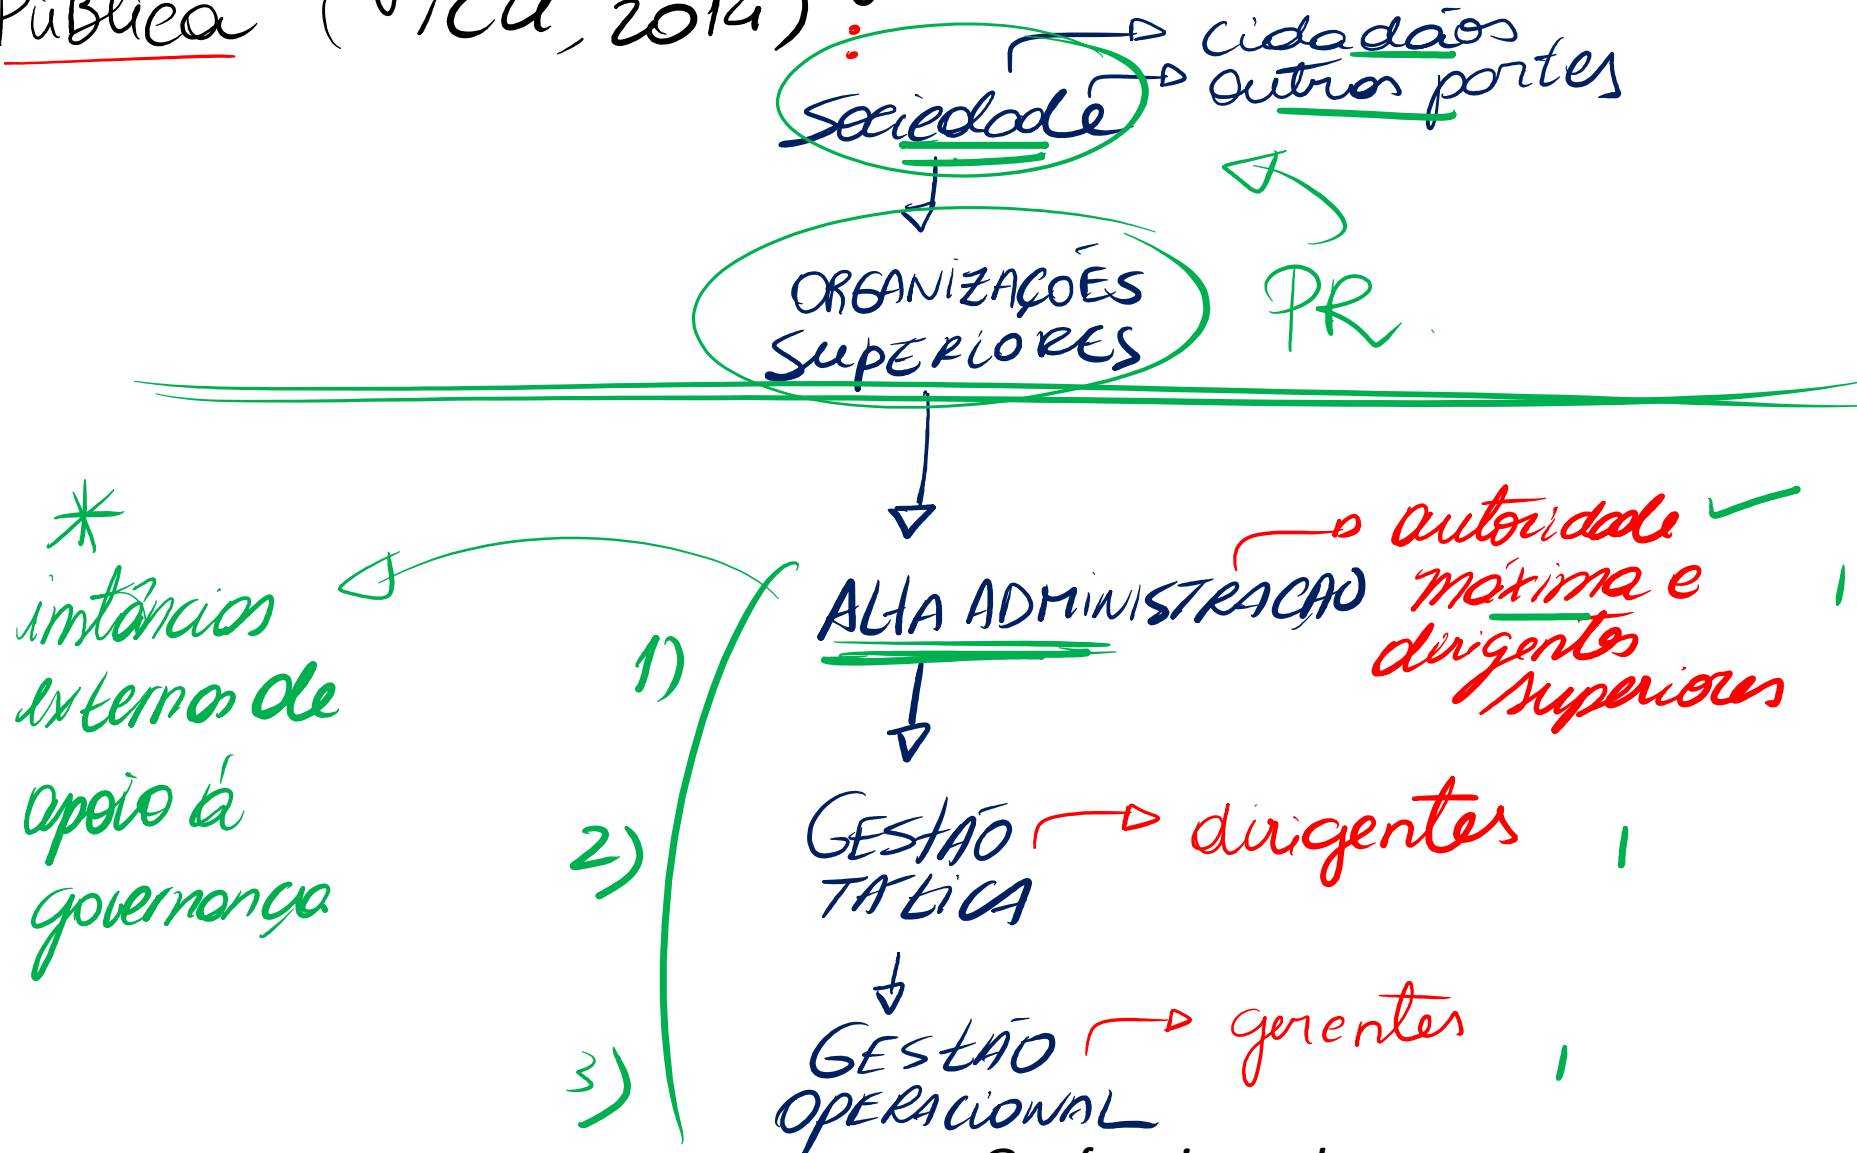 Pública (TCU, 2014):
Sociedade
cidadãos
outros partes
ORGANIZAÇÕES
SUPERIORES
PR.
*
instâncias
externas de
apoio à
governança
1)
ALTA ADMINISTRAÇÃO
autoridade
máxima e
dirigentes
superiores
2)
GESTÃO
TATICA
dirigentes
3)
GESTÃO
OPERACIONAL
gerentes